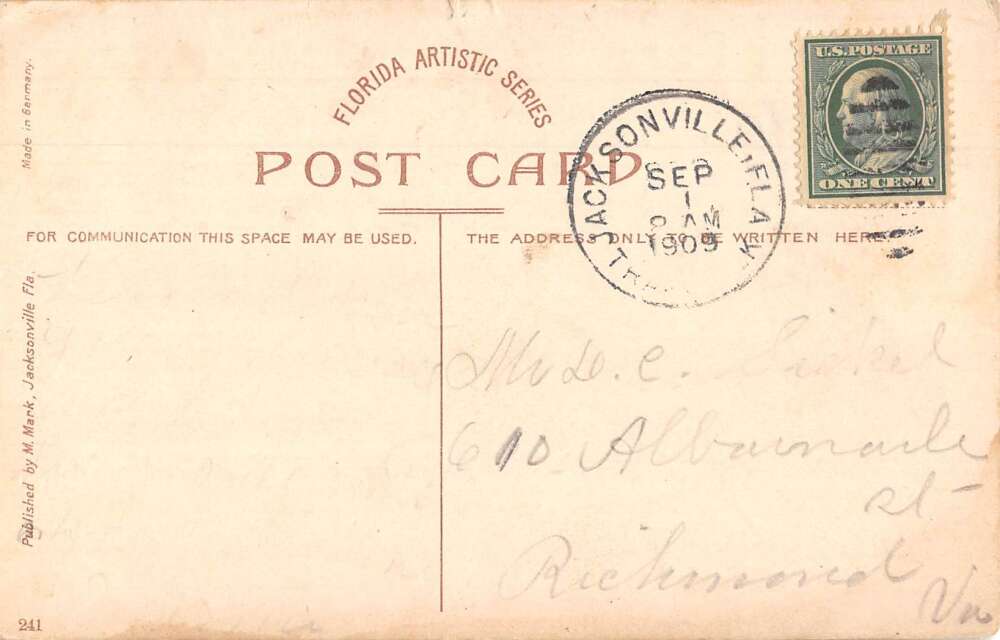 FLORIDA ARTISTIC SERIES
POST CARD
FOR COMMUNICATION THIS SPACE MAY BE USED.
THE ADDRESS ONLY TO BE WRITTEN HERE.
U.S. POSTAGE
ONE CENT
JACKSONVILLE, FLA
SEP
1
AM
1909
Made in Germany.
Published by M. Mark, Jacksonville Fla.
241
D. C.
610 Albemarle
st
Richmond
Va